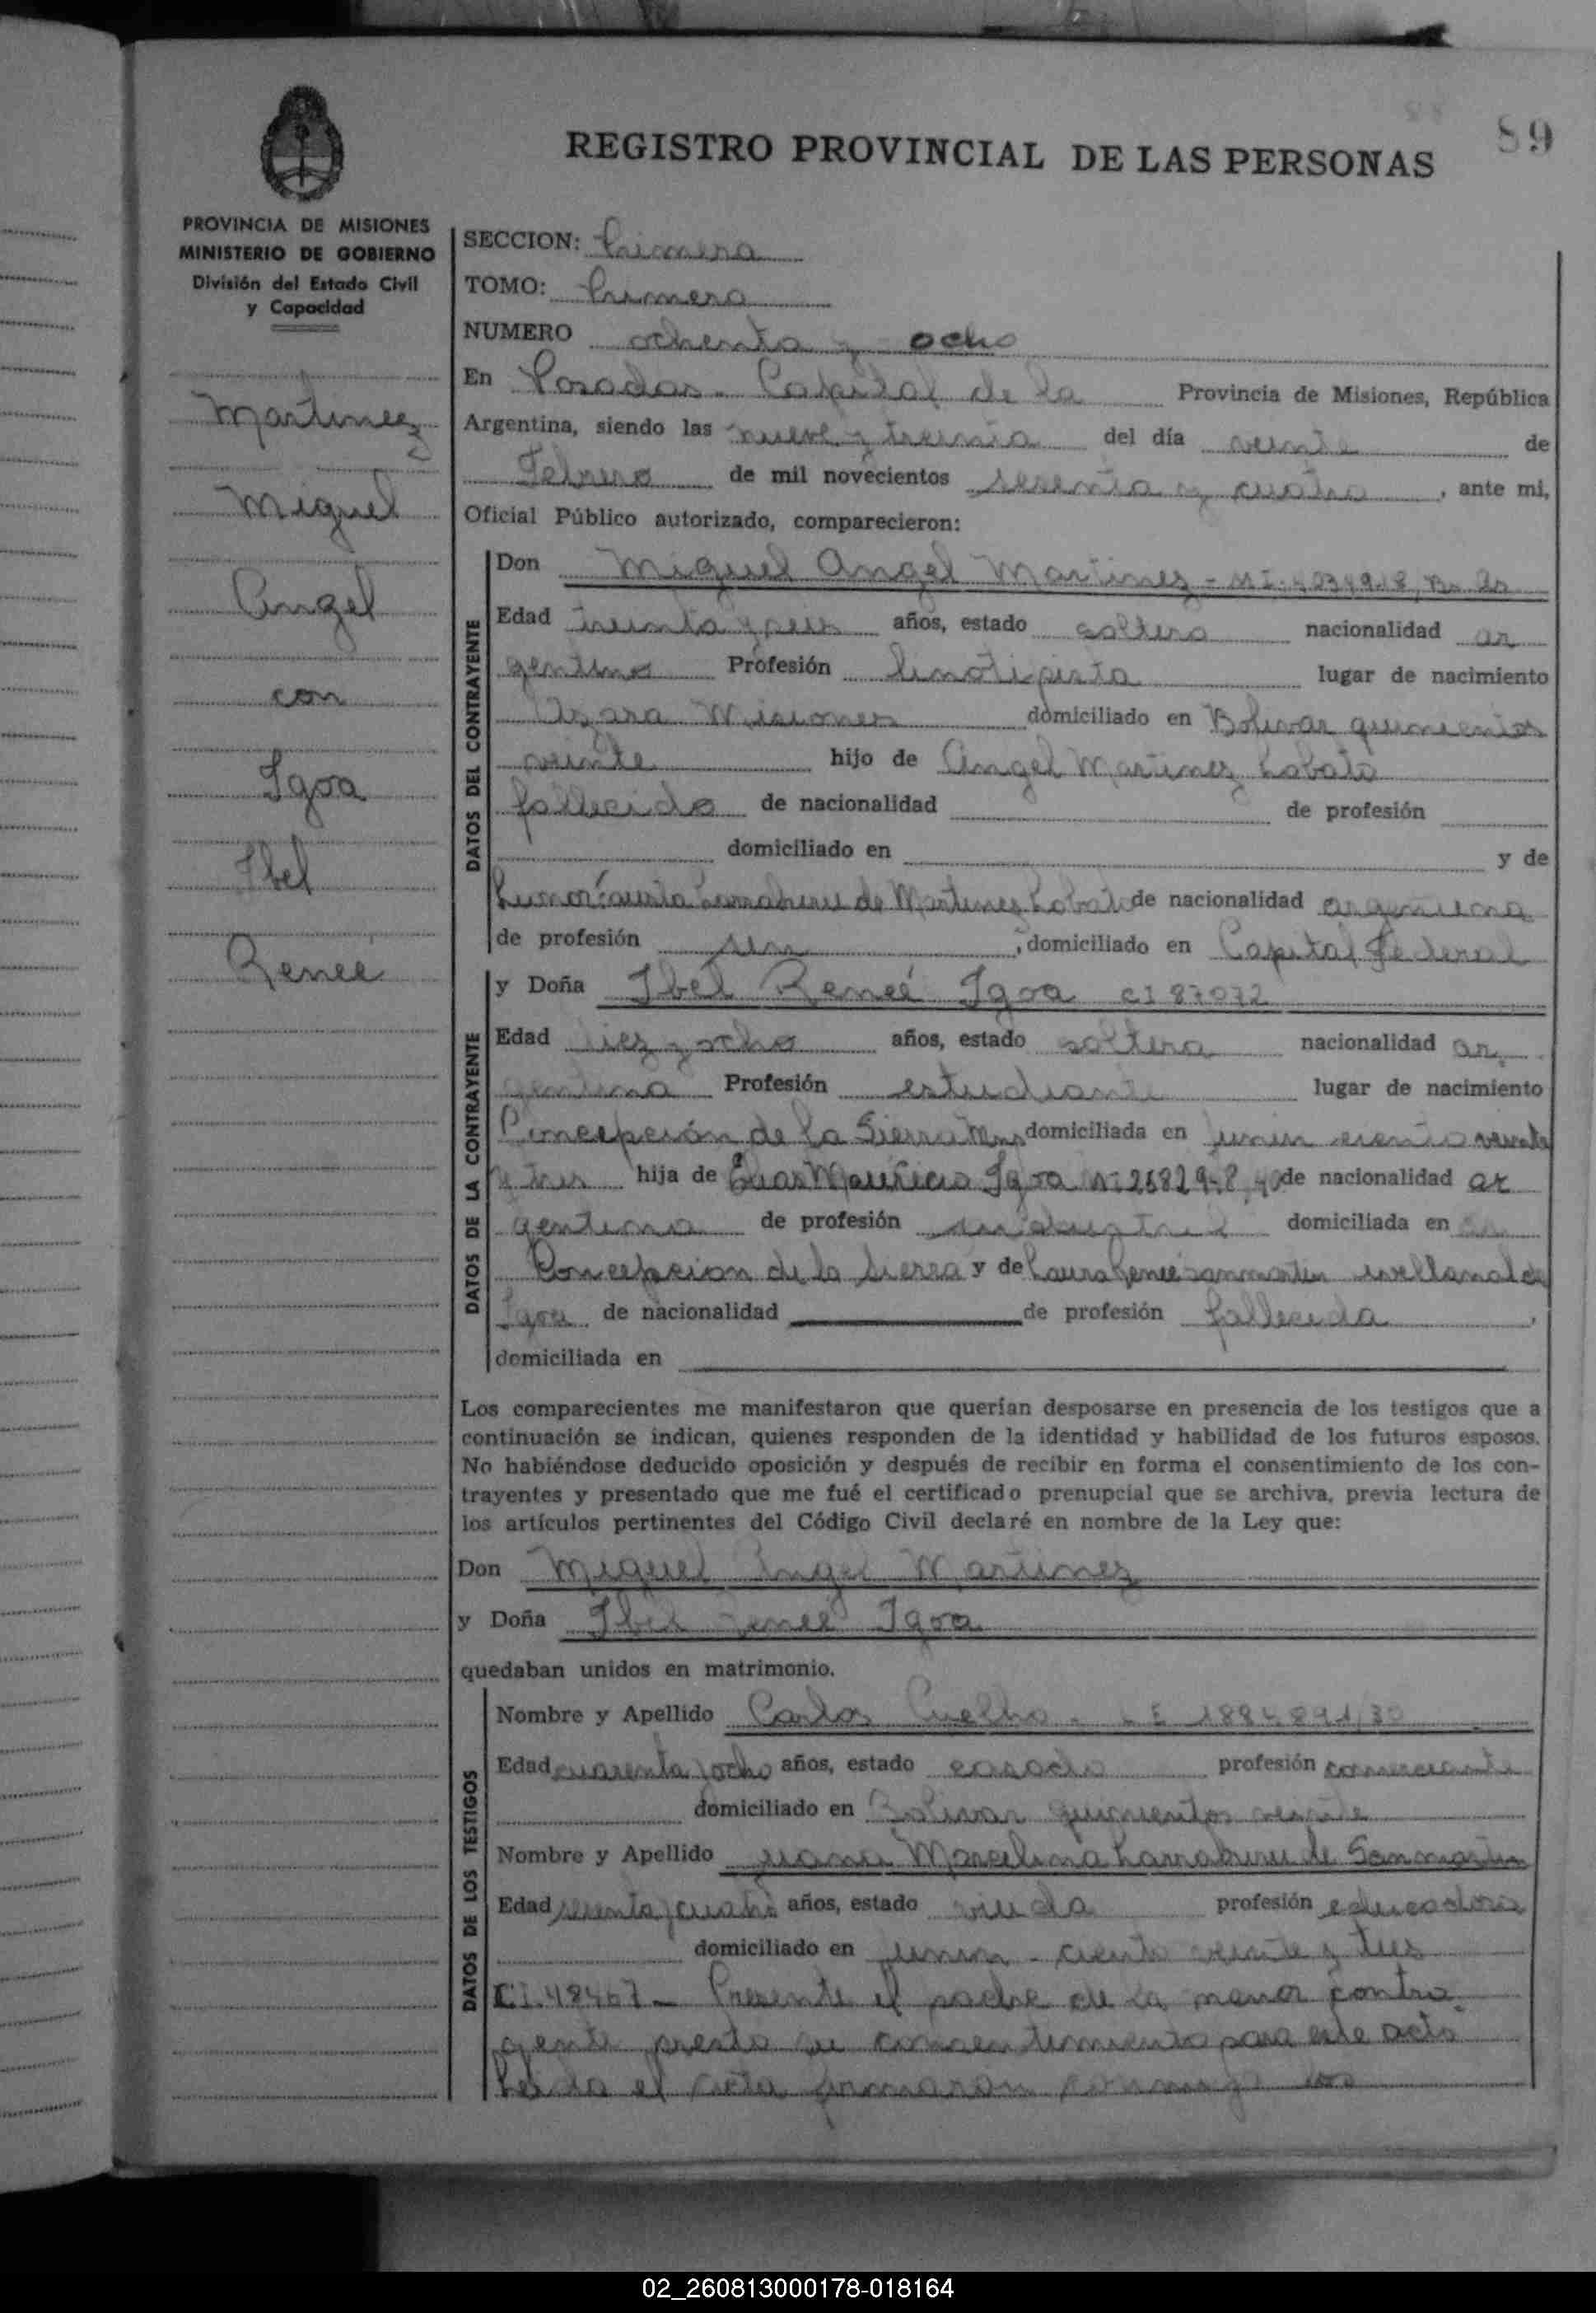 89
REGISTRO PROVINCIAL DE LAS PERSONAS
PROVINCIA DE MISIONES
MINISTERIO DE GOBIERNO
División del Estado Civil
y Capacidad
Martinez
Miguel
Angel
con
Igoa
Ibel
Reneé
SECCION: Primera
TOMO: Primero
NUMERO ochenta y ocho
En Posadas - Capital de la Provincia de Misiones, República
Argentina, siendo las nueve y treinta del día veinte de
Febrero de mil novecientos sesenta y cuatro, ante mi,
Oficial Público autorizado, comparecieron:
DATOS DEL CONTRAYENTE
Don Miguel Angel Martinez - M I. Bs. As
Edad treinta y seis años, estado soltero nacionalidad ar
gentino Profesión linotipista lugar de nacimiento
Azara Misiones domiciliado en Bolivar quinientos
veinte hijo de Angel Martinez Lobato
fallecido de nacionalidad de profesión
domiciliado en y de
Larraburu de Martinez Lobato de nacionalidad argentina
de profesión sin, domiciliado en Capital Federal
DATOS DE LA CONTRAYENTE
y Doña Ibel Reneé Igoa CI 87072
Edad diez y ocho años, estado soltera nacionalidad ar
gentina Profesión estudiante lugar de nacimiento
Concepción de la Sierra Mns domiciliada en Junin ciento veinte
y tres hija de Mauricio Igoa de nacionalidad ar
gentina de profesión industrial domiciliada en
Concepcion de la Sierra y de Laura Reneé Sanmartin de
Igoa de nacionalidad de profesión fallecida,
domiciliada en
Los comparecientes me manifestaron que querían desposarse en presencia de los testigos que a
continuación se indican, quienes responden de la identidad y habilidad de los futuros esposos.
No habiéndose deducido oposición y después de recibir en forma el consentimiento de los con-
trayentes y presentado que me fué el certificado prenupcial que se archiva, previa lectura de
los artículos pertinentes del Código Civil declaré en nombre de la Ley que:
Don Miguel Angel Martinez
y Doña Ibel Reneé Igoa
quedaban unidos en matrimonio.
DATOS DE LOS TESTIGOS
Nombre y Apellido Carlos Cuelho - L E
Edad cuarenta y ocho años, estado casado profesión comerciante
domiciliado en Bolivar quinientos veinte
Nombre y Apellido Juana Marcelina Larraburu de Sanmartin
Edad sesenta y cuatro años, estado viuda profesión educadora
domiciliado en Junin - ciento veinte y tres
C I. 48467 - Presente el padre de la menor contra
yente presta su consentimiento para este acto
Leida el acta firmaron conmigo los
02_260813000178-018164